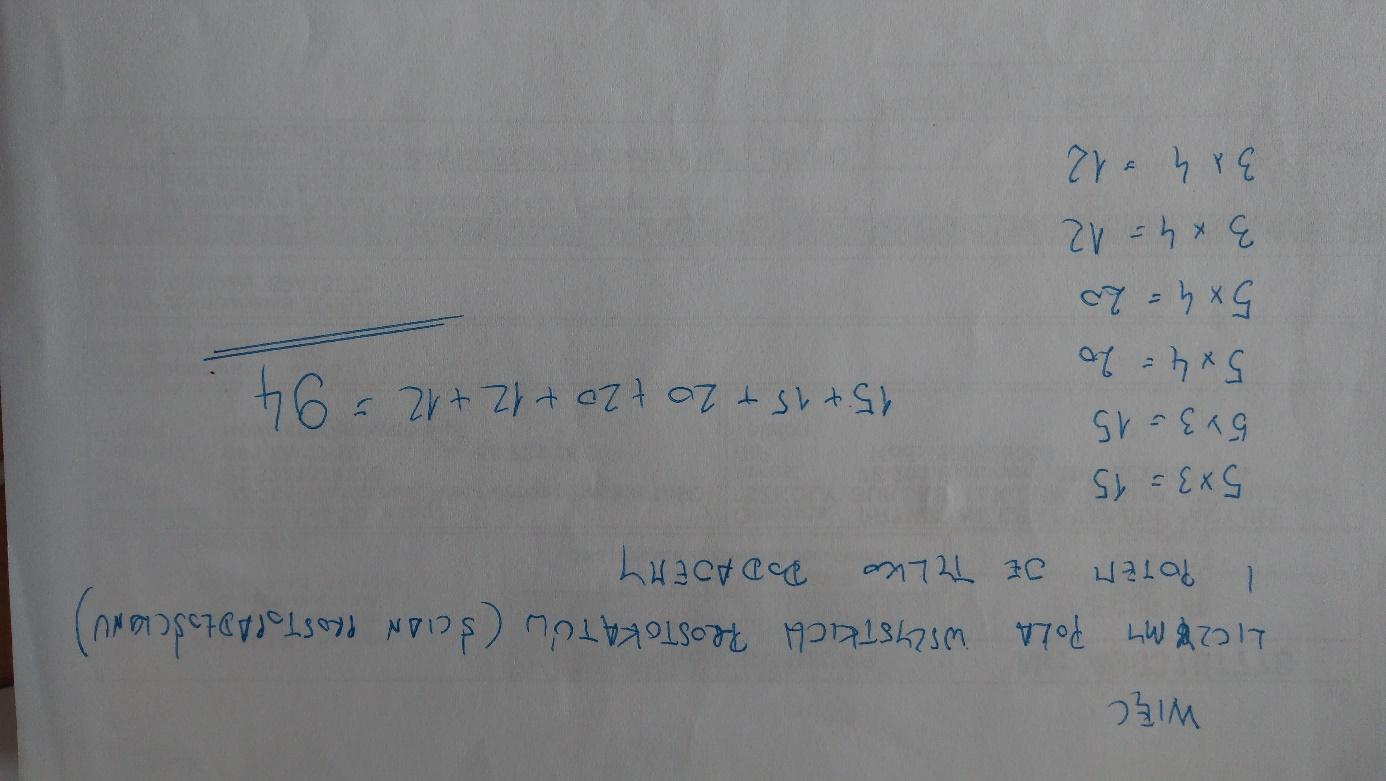 WIĘC
LICZYMY POLA WSZYSTKICH PROSTOKĄTÓW (ŚCIAN PROSTOPADŁOŚCIANU)
I POTEM JE TYLKO DODAJEMY
5 x 3 = 15
5 x 3 = 15
5 x 4 = 20
5 x 4 = 20
3 x 4 = 12
3 x 4 = 12
15 + 15 + 20 + 20 + 12 + 12 = 94